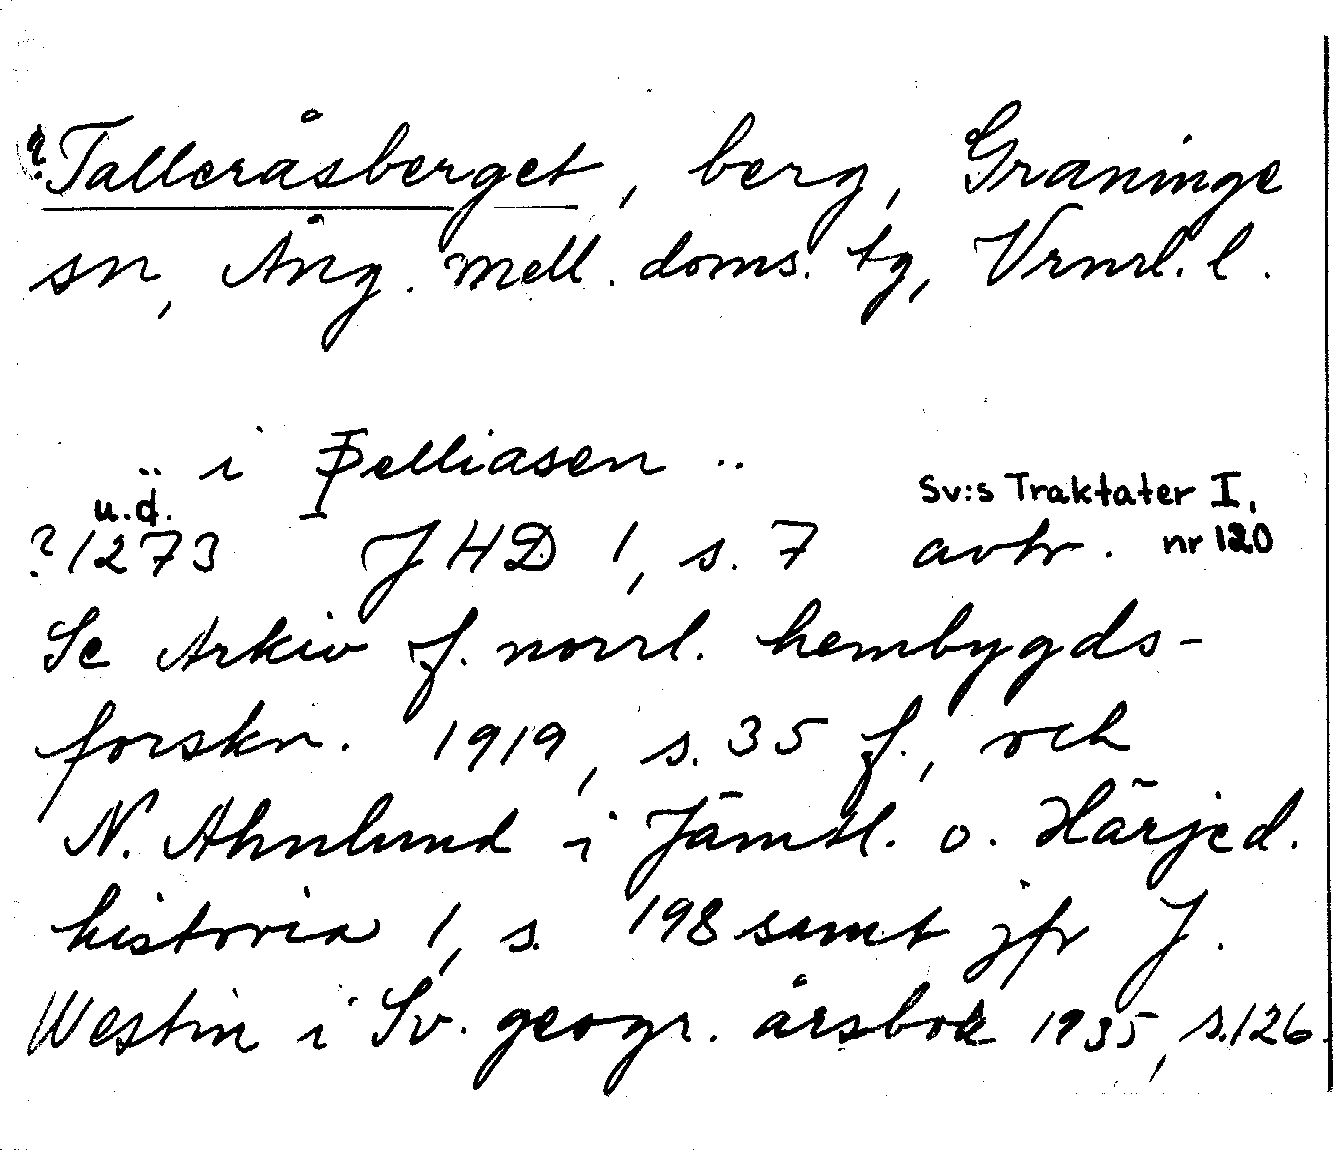 ? Talleråsberget, berg, Graninge
sn, Ång. mell. doms. tg, Vrnrl. l.
.. i Þelliasen ..
u.d. Sv:s Traktater I,
?1273 JHD 1, s. 7 avtr. nr 120
Se Arkiv f. norrl. hembygds-
forskn. 1919, s. 35 f., och
N. Ahnlund i Jämtl. o. Härjed.
historia 1, s. 198 samt jfr J.
Westin i Sv. geogr. årsbok 1935, s.126.